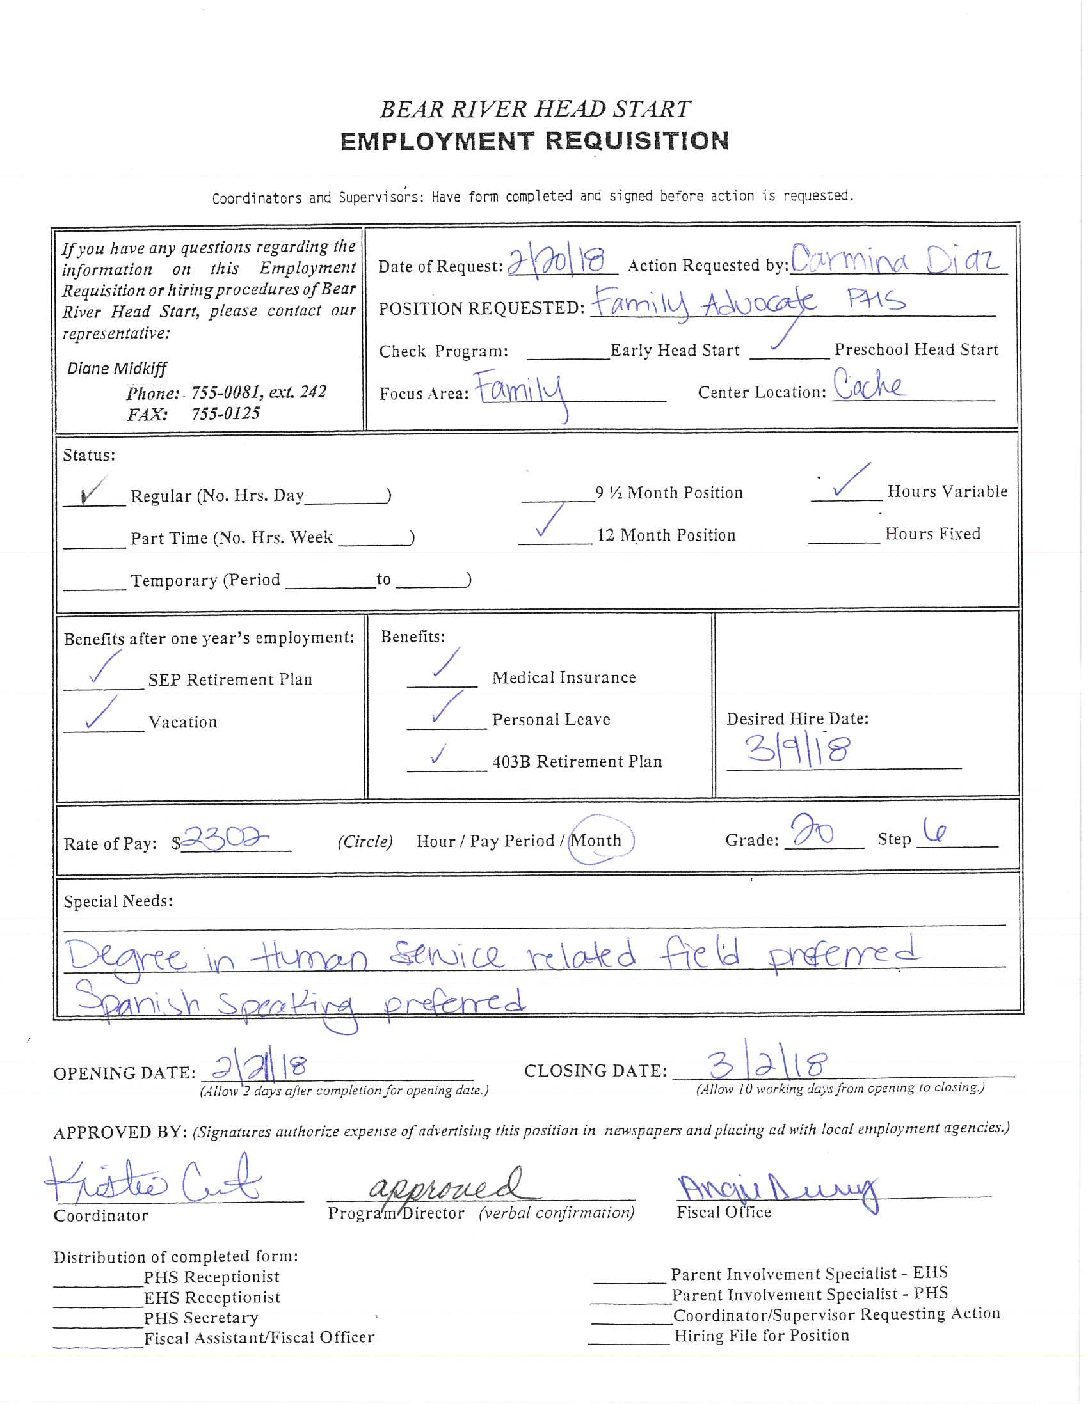 BEAR RIVER HEAD START
EMPLOYMENT REQUISITION
Coordinators and Supervisors: Have form completed and signed before action is requested.
If you have any questions regarding the
information on this Employment
Requisition or hiring procedures of Bear
River Head Start, please contact our
representative:
Diane Midkiff
Phone: 755-0081, ext. 242
FAX: 755-0125
Date of Request: 2/20/18 Action Requested by: Carmina Diaz
POSITION REQUESTED: Family Advocate PHS
Check Program: ______ Early Head Start ✓ Preschool Head Start
Focus Area: Family Center Location: Cache
Status:
✓ Regular (No. Hrs. Day______) ______ 9 ½ Month Position ✓ Hours Variable
______ Part Time (No. Hrs. Week ______) ✓ 12 Month Position ______ Hours Fixed
______ Temporary (Period ______ to ______)
Benefits after one year's employment:
✓ SEP Retirement Plan
✓ Vacation
Benefits:
✓ Medical Insurance
✓ Personal Leave
✓ 403B Retirement Plan
Desired Hire Date:
3/9/18
Rate of Pay: $2302 (Circle) Hour / Pay Period / Month Grade: 20 Step 6
Special Needs:
Degree in Human Service related field preferred
Spanish Speaking preferred
OPENING DATE: 2/21/18 CLOSING DATE: 3/2/18
(Allow 2 days after completion for opening date.) (Allow 10 working days from opening to closing.)
APPROVED BY: (Signatures authorize expense of advertising this position in newspapers and placing ad with local employment agencies.)
Kristie approved Angie
Coordinator Program Director (verbal confirmation) Fiscal Office
Distribution of completed form:
______ PHS Receptionist
______ EHS Receptionist
______ PHS Secretary
______ Fiscal Assistant/Fiscal Officer
______ Parent Involvement Specialist - EHS
______ Parent Involvement Specialist - PHS
______ Coordinator/Supervisor Requesting Action
______ Hiring File for Position